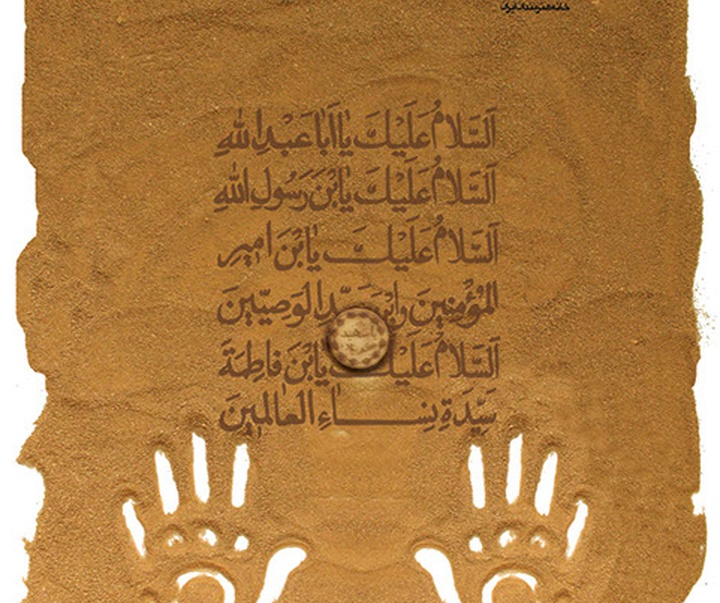 خانه هنرمندان ایران
اَلسَّلامُ عَلَيْكَ يا اَبا عَبْدِ اللهِ
اَلسَّلامُ عَلَيْكَ يَا بْنَ رَسُولِ اللهِ
اَلسَّلامُ عَلَيْكَ يَا بْنَ اميرِ
المُؤْمِنينَ وابْنَ سَيِّدِ الوَصِيّينَ
اَلسَّلامُ عَلَيْكَ يَا بْنَ فاطِمَةَ
سَيِّدَةِ نِساءِ العالَمينَ